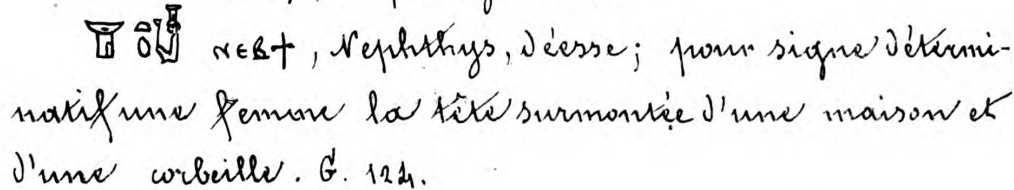 ⲛⲉⲃϯ, Nephthys, déesse; pour signe détermi-
natif une femme la tête surmontée d'une maison et
d'une corbeille. G. 124.